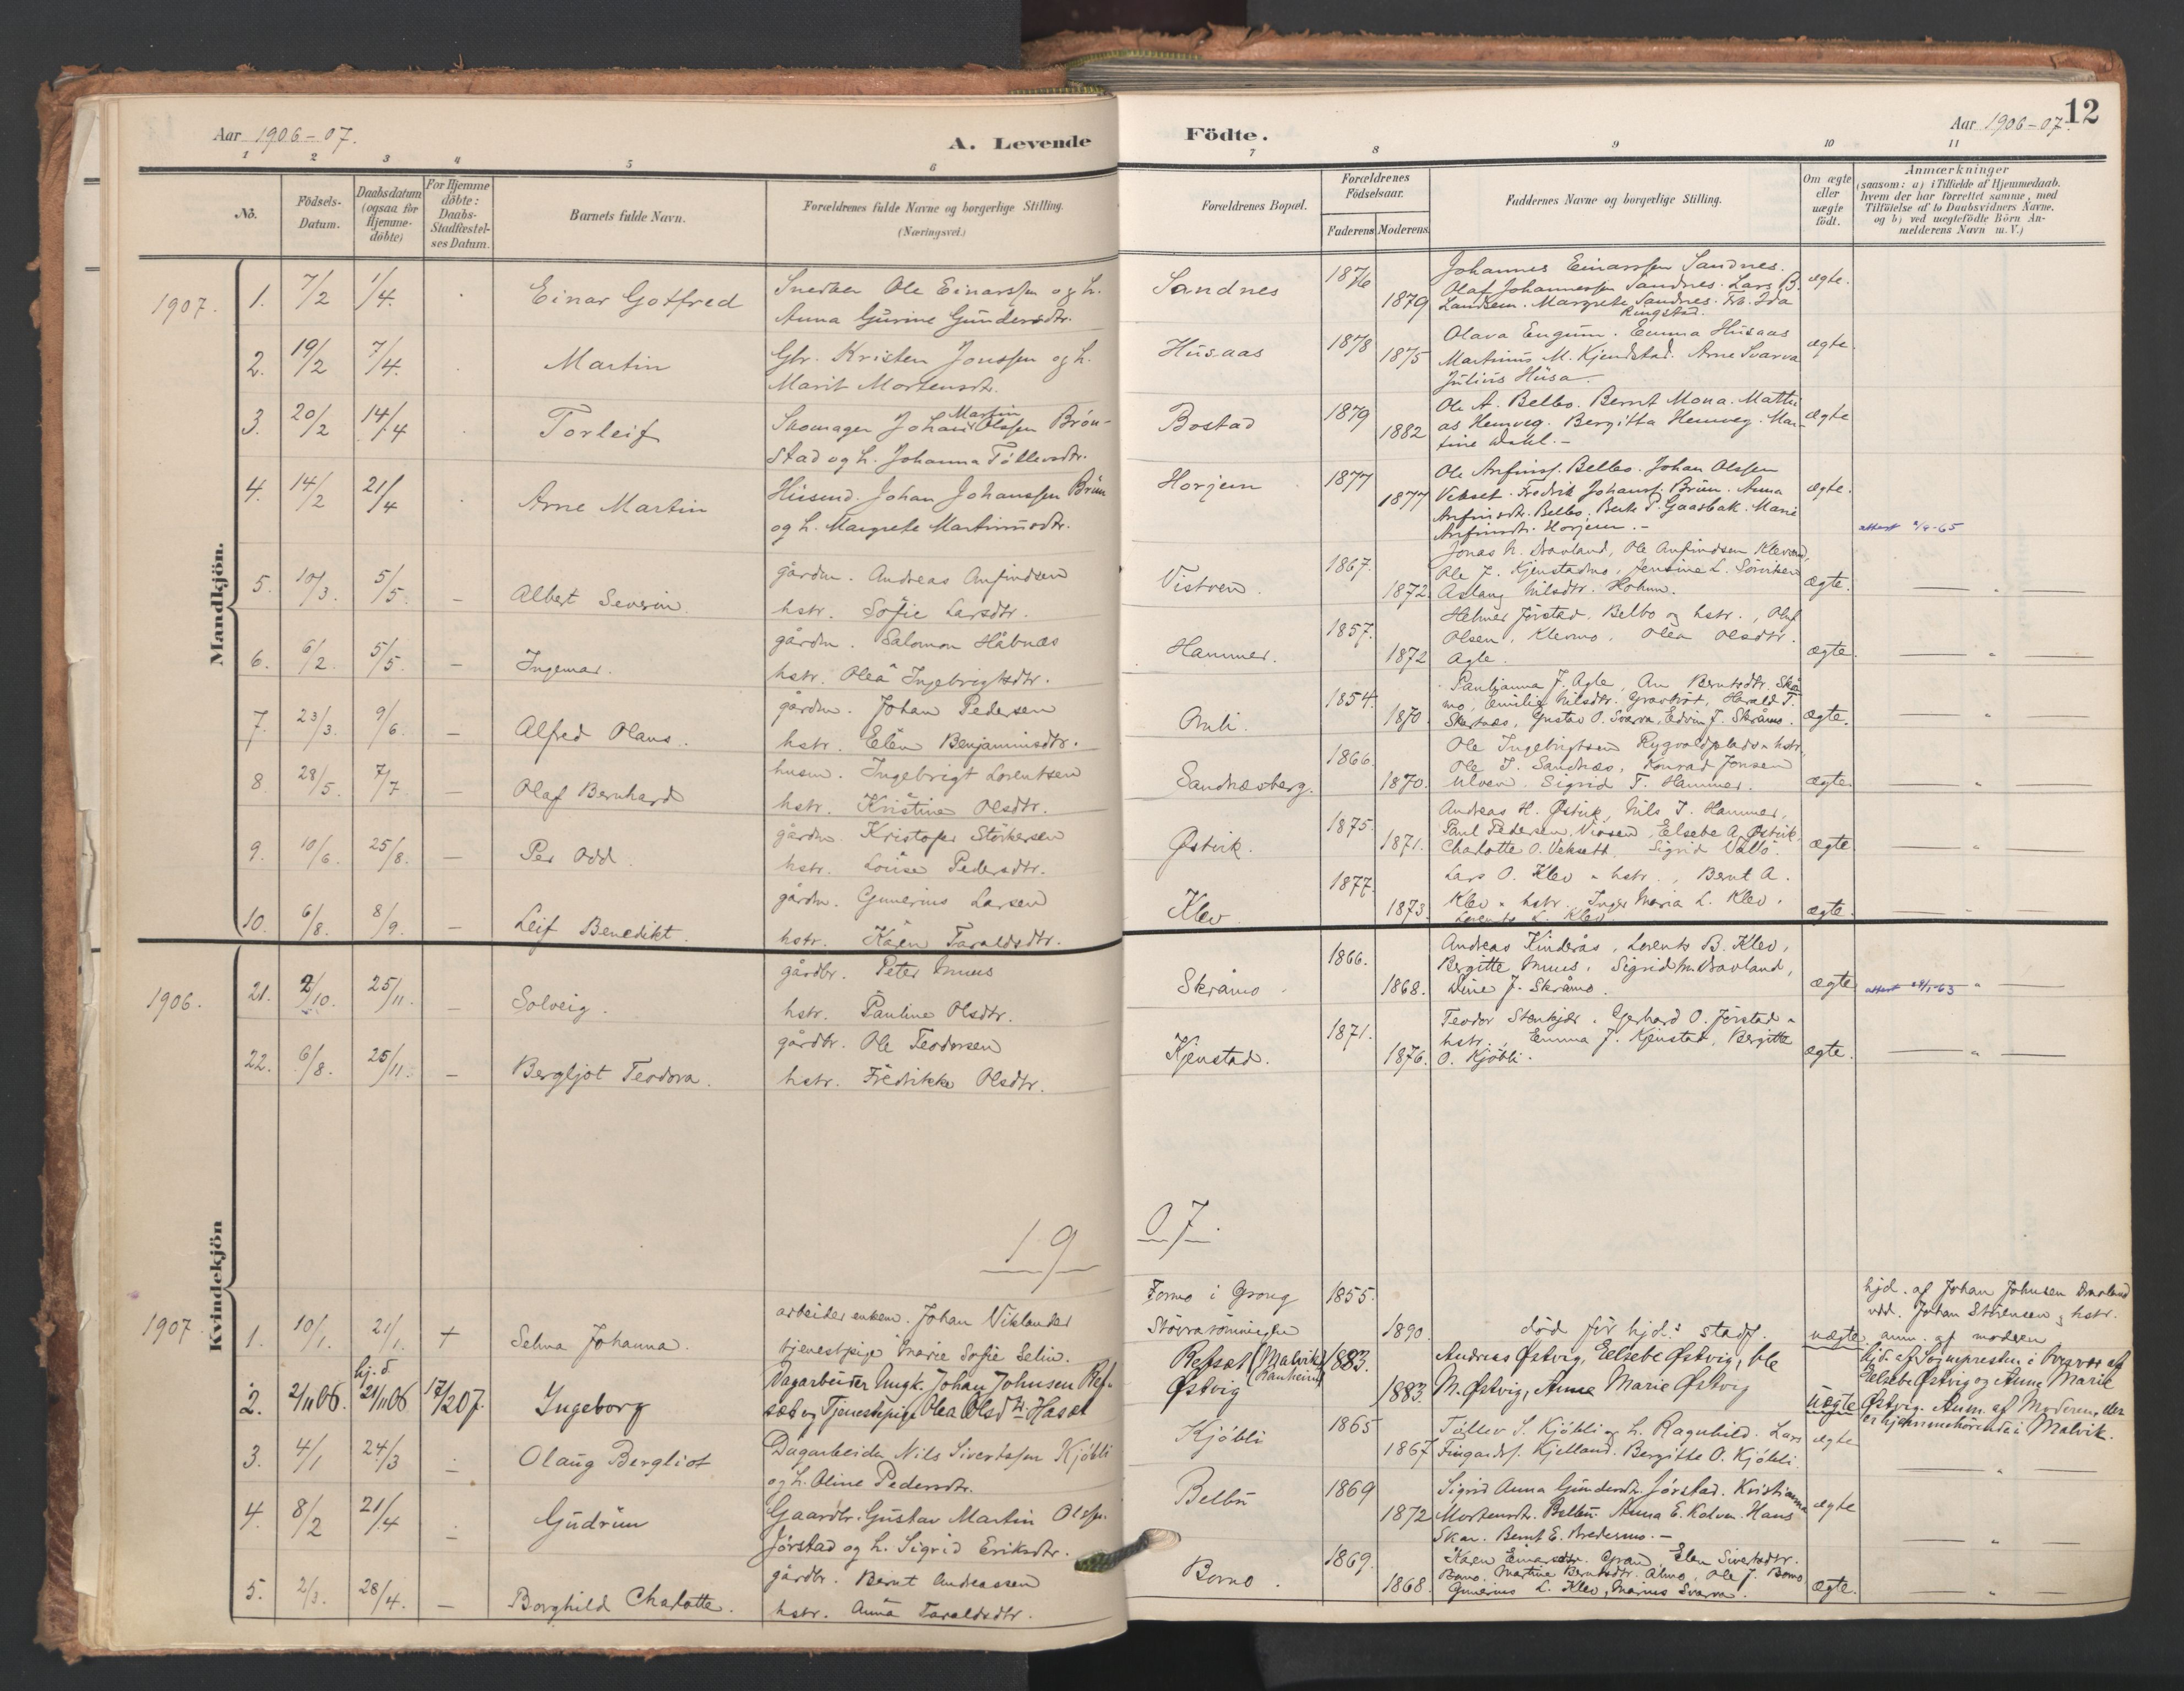 Aar 1906-07.
A. Levende
Födte.
Aar 1906-07.
12
1 2 3 4 5 6 7 8 9 10 11
Nô.
Födsels-Datum.
Daabsdatum (ogsaa for Hjemme-döbte)
For Hjemme döbte: Daabs-Stadfæstel-ses Datum.
Barnets fulde Navn.
Forældrenes fulde Navne og borgerlige Stilling. (Næringsvei.)
Forældrenes Bopæl.
Forældrenes Födselsaar.
Faderens Moderens
Faddernes Navne og borgerlige Stilling.
Om ægte eller uægte födt.
Anmærkninger
(saasom: a) i Tilfælde af Hjemmedaab.
hvem der har forrettet samme, med
Tilföielse af to Daabsvidners Navne.
og b) ved uegtefödte Börn An-
melderens Navn m.V.)
Mandkjön.
1907. 1. 7/2 1/4. Einar Gotfred
Snedker Ole Einarssen og h.
Anna Gurine Gundersdtr.
Sandnes 1876 1879
Johannes Einarssen Sandnes.
Olaf Johannessen Sandnes. Lars B.
Landsem. Margrete Sandnes. Frk. Ida
Ringstad.
ægte.
2. 19/2 7/4. Martin
Gbr. Kristen Jonssen og h.
Marit Mortensdtr.
Husaas 1878 1875
Olava Engum. Emma Husaas
Martinus M. Kjendstad. Arne Svarva
Julius Husa.
ægte.
3. 20/2 14/4 Torleif
Skomager Johan Martin Olssen Brön-
stad og h. Johanna Töllevsdtr.
Bostad 1879 1882
Ole A. Belbo. Bernt Mona. Matthi
as Hemveg. Bergitta Hemveg. Mar-
tine Dahl.-
ægte
4. 14/2 21/4 Arne Martin
Husmd. Johan Johanssen Brün
og h. Margrete Martinusdtr.
Horjem 1877 1877
Ole Anfinns. Belbo. Johan Olssen
Vekset. Fredrik Johans. Brün. Anna
Anfinsdtr. Belbo. Berit P. Gaasbak. Marie
Anfinsdtr. Horjem.-
ægte.
attest 2/9-65
5. 10/3. 5/5. - Albert Severin.
gårdm. Andreas Anfindsen
hstr. Sofie Larsdtr.
Vistven. 1867. 1872.
Jonas N. Dravland, Ole Anfindsen Klevmo,
Ole J. Kjenstadmo, Jensine L. Sörviken
Aslaug Nilsdtr. Holmo.
ægte. - " -
6. 6/2. 5/5. - Ingemar.
gårdm. Salomon Håbnæs
hstr. Olea Ingebrigtsdtr.
Hammer. 1857. 1872
Helmer Jörstad, Belbo og hstr., Oluf
Olsen, Klevmo, Olea Olsdtr.
Agle.
ægte. - " -
7. 23/3. 9/6. - Alfred Olaus.
gårdm. Johan Pedersen
hstr. Elen Benjaminsdtr.
Omli. 1854. 1870.
Paulianna J. Agle, An Berntsdtr. Skrå
mo, Emilie Nilsdtr. Gravbröt, Harald T.
Skartnæs, Gustav O. Svarva, Edvin J. Skråmo.
ægte. - " -
8. 28/5. 7/7. - Olaf Bernhard
husm. Ingebrigt Lorentsen
hstr. Kristine Olsdtr.
Sandnæsberg. 1866. 1870.
Ole Ingebrigtsen Rygvoldplads & hstr,
Ole I. Sandnæs, Konrad Jonsen
Ulven. Sigrid T. Hammer.
ægte. - " -
9. 10/6. 25/8. - Per Odd.
gårdm. Kristofer Störkersen
hstr. Lovise Pedersdtr.
Østvik. 1875. 1871.
Andreas H. Østvik, Nils T. Hammer,
Paul Pedersen Viosen, Elsebe A. Østvik,
Charlotte O. Veksett. Sigrid Valsö.
ægte - " -
10. 6/8. 8/9. - Leif Benedikt.
gårdm. Gunerius Larsen
hstr. Karen Taraldsdtr.
Klev. 1877. 1873.
Lars O. Klev & hstr., Bernt A.
Klev & hstr. Inger Maria L. Klev.
Lorents L. Klev.
ægte. - " -
Kvindekjön
1906. 21. 2/10. 25/11. - Solveig.
gårdbr. Peter Muus
hstr. Pauline Olsdtr.
Skråmo 1866. 1868.
Andreas Kinderås, Lorents B. Klev,
Bergitte Muus, Sigrid M. Dravland,
Dine J. Skråmo.
ægte attest 28/1-63 " -
22. 6/8. 25/11. - Bergljot Teodora.
gårdbr. Ole Teodorsen
hstr. Fredrikke Olsdtr.
Kjenstad. 1871. 1876.
Teodor Stenkjær, Gerhard O. Jörstad &
hstr., Emma J. Kjenstad, Bergitte
O. Kjöbli.
ægte. - " -
19 07.
1907. 1. 10/1. 21/1. + Selma Johanna.
arbeider enkem. Johan Viklander
tjenestpige Marie Sofie Selin.
Formo i Grong 1855. 1890.
död för hjd.s stadf. uægte.
hjd. af Johan Johnsen Dravland
vdd. Johan Störensen & hstr.
anm. af moderen
2. 2/11 06. hj. d. 21/11 06 17/2 07. Ingeborg
Dagarbeider Ungk. Johan Johnsen Ref-
sæt og Tjenestepige Olea Olsdtr. Hasæt
Refsæt (Malvik) Ranheim 1883.
Østvig 1883.
Andreas Østvig, Elsebe Østvig, Ole
M. Østvig, Anne Marie Østvig
Uægte
Hj.d. af Sognepresten i Overvær af
Elsebe Østvig og Anne Marie
Østvig. Anm. af Moderen, der
er hjemmehörende i Malvik.
3. 4/1 24/3 - Olaug Bergliot
Dagarbeider Nils Sivertssen Kjöbli
og h. Oline Pedersdtr.
Kjöbli 1865 1867
Töllev S. Kjöbli og h. Ragnhild. Lars
Fingards. Kjelland. Bergitte O. Kjöbli.
ægte - " -
4. 8/2 21/4 - Gudrun
Gaardbr. Gustav Martin Olss.
Jörstad og h. Sigrid Eriksdtr.
Belbu 1869 1872
Sigrid Anna Gundersdtr. Jörstad. Kristianna
Mortensdtr. Belbu. Anna E. Kalven. Hans
Skar. Bernt E. Bredesmo.-
ægte - " -
5. 2/3. 28/4. - Borghild Charlotte.
gårdbr. Bernt Andreassen
hstr. Anna Taraldsdtr.
Bomo. 1869. 1868.
Karen Einarsdtr. Gran, Elen Sivertsdtr.
Bomo, Martine Berntsdtr. Almo, Ole J. Bomo
Gunerius L. Klev, Marius Svarva.
ægte. "